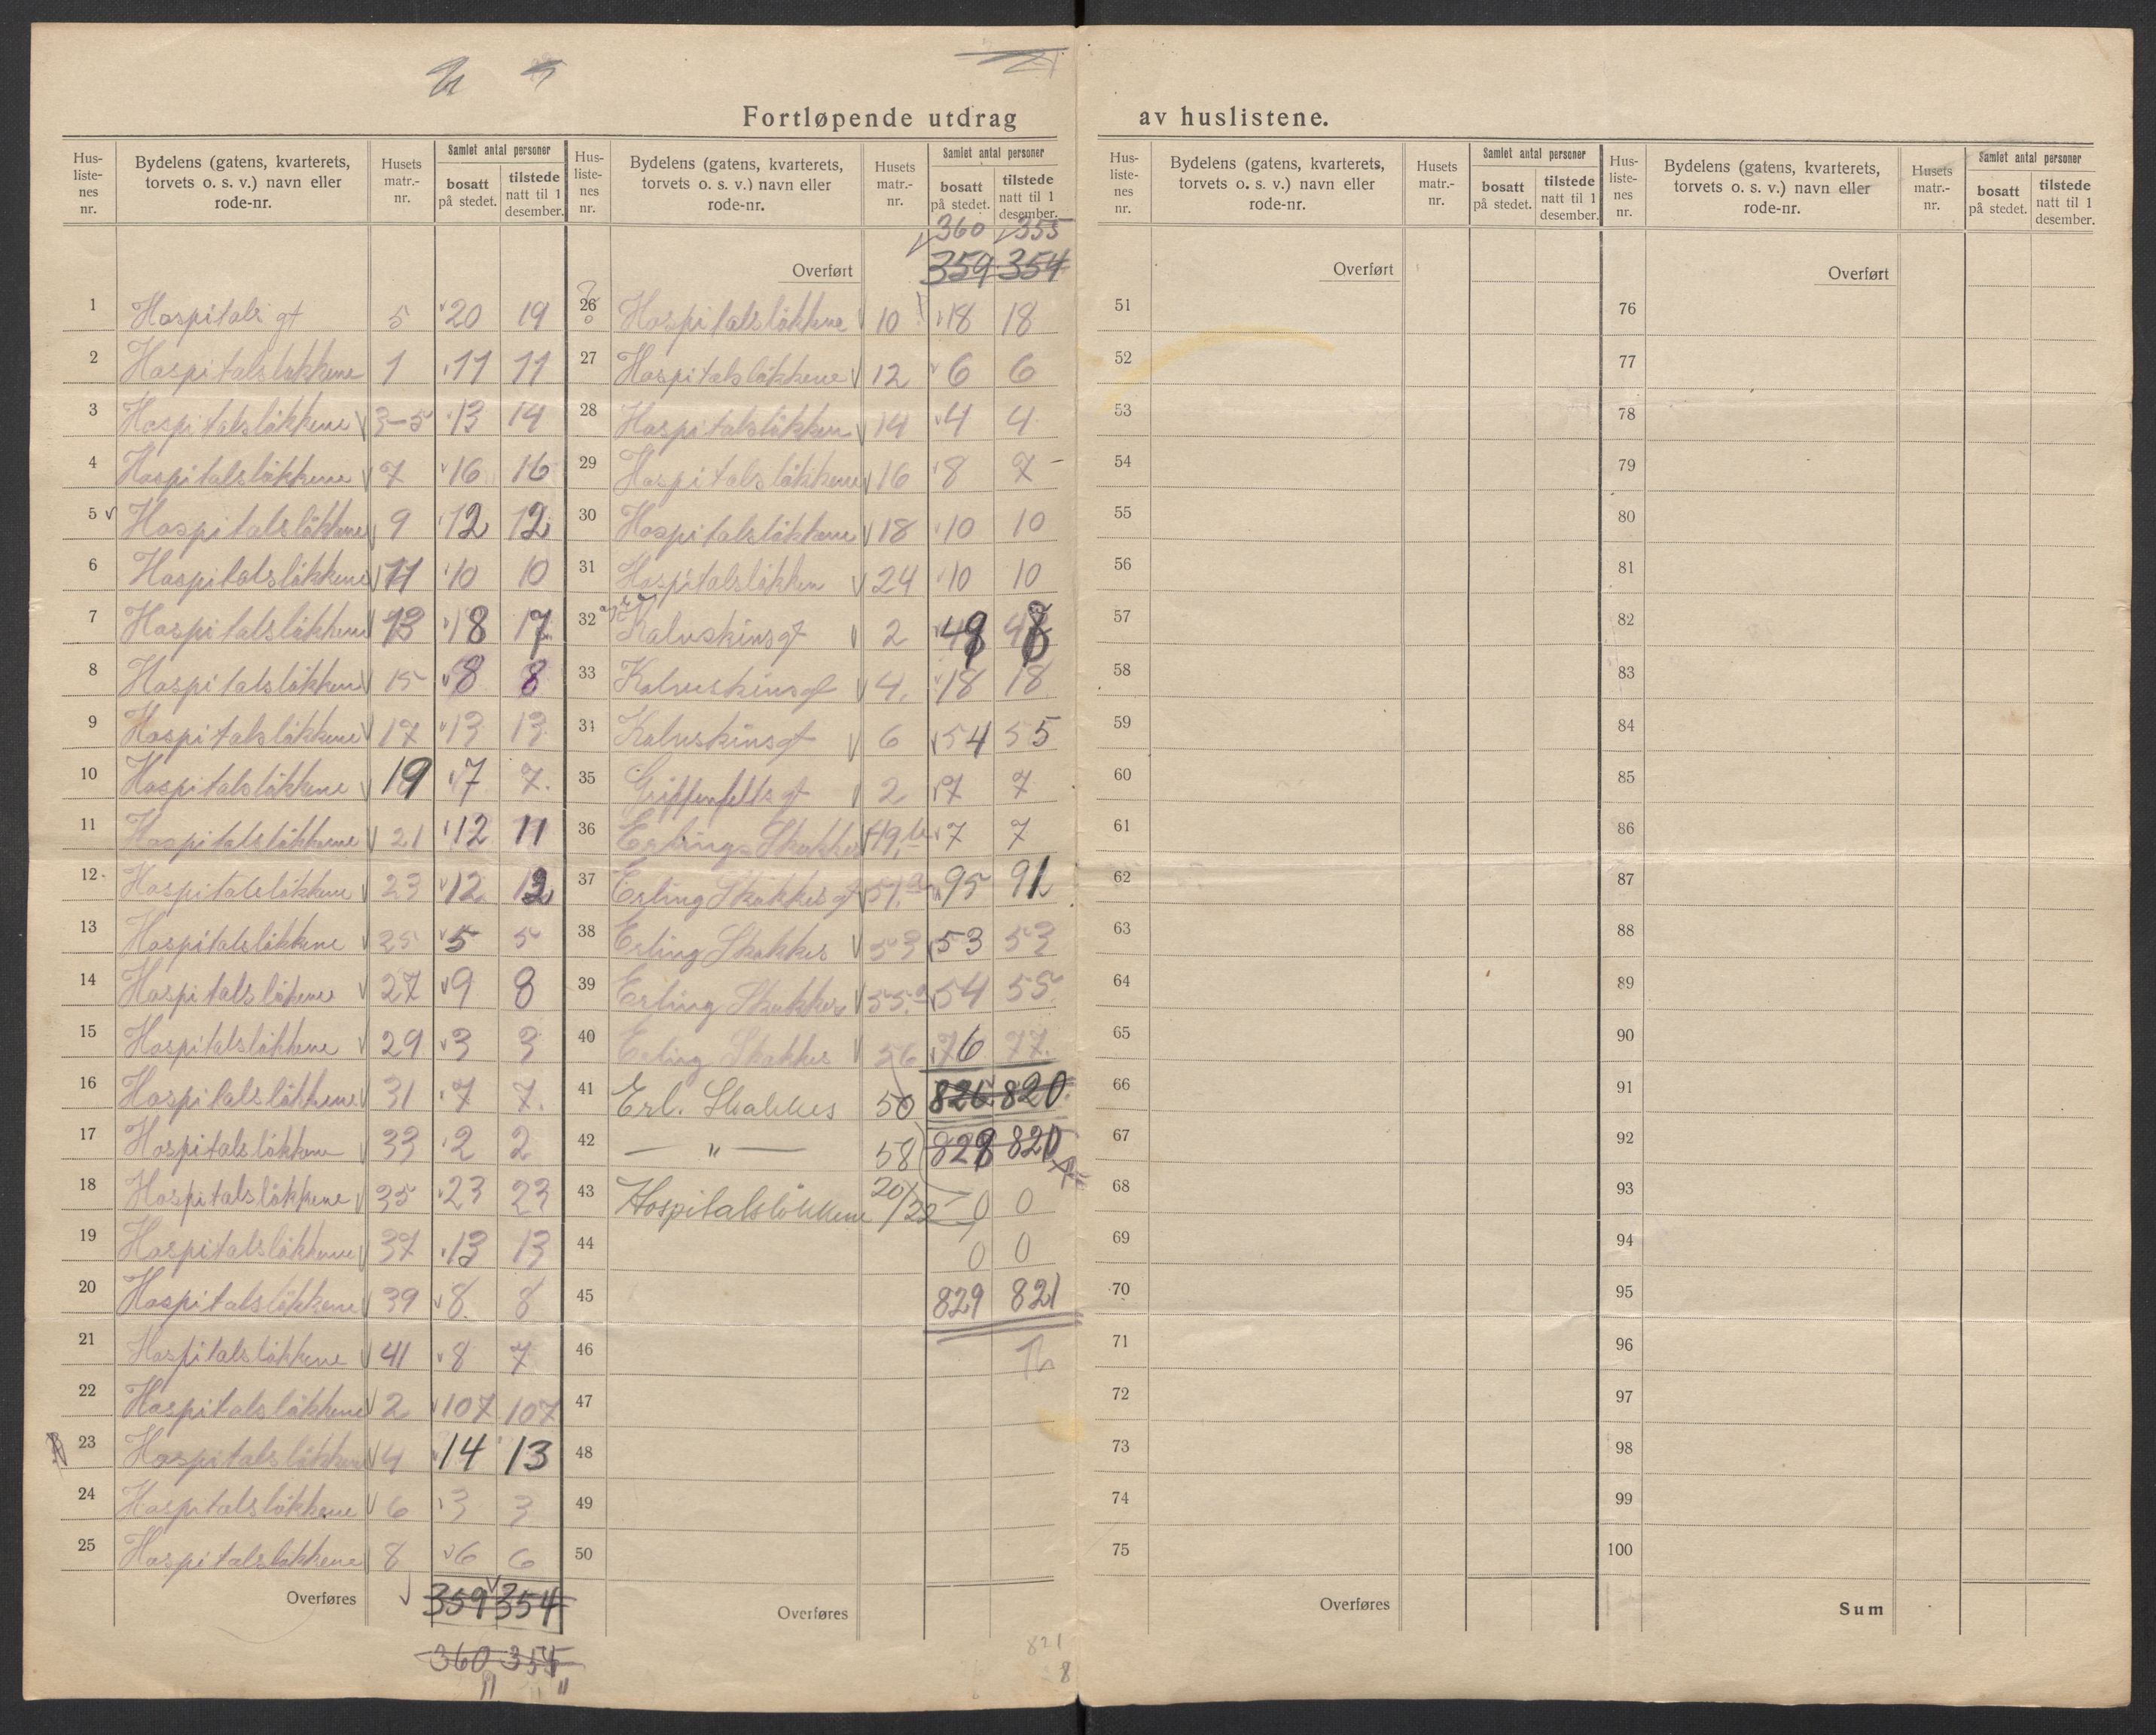 Fortløpende utdrag av huslistene.
Hus-listenes nr. Bydelens (gatens, kvarterets, torvets o. s. v.) navn eller rode-nr. Husets matr.-nr. Samlet antal personer bosatt på stedet. tilstede natt til 1 desember.
1 Hospitals gt 5 20 19
2 Hospitalsløkkene 1 11 11
3 Hospitalsløkkene 3-5 13 14
4 Hospitalsløkkene 7 16 16
5 Hospitalsløkkene 9 12 12
6 Hospitalsløkkene 11 10 10
7 Hospitalsløkkene 13 18 17
8 Hospitalsløkkene 15 8 8
9 Hospitalsløkkene 17 13 13
10 Hospitalsløkkene 19 7 7
11 Hospitalsløkkene 21 12 11
12 Hospitalsløkkene 23 12 12
13 Hospitalsløkkene 25 5 5
14 Hospitalsløkene 27 9 8
15 Hospitalsløkkene 29 3 3
16 Hospitalsløkkene 31 7 7
17 Hospitalsløkkene 33 2 2
18 Hospitalsløkkene 35 23 23
19 Hospitalsløkkene 37 13 13
20 Hospitalsløkkene 39 8 8
21 Hospitalsløkkene 41 8 7
22 Hospitalsløkkene 2 107 107
23 Hospitalsløkkene 4 14 13
24 Hospitalsløkkene 6 3 3
25 Hospitalsløkkene 8 6 6
Overføres 359 354
360 355
Hus-listenes nr. Bydelens (gatens, kvarterets, torvets o. s. v.) navn eller rode-nr. Husets matr.-nr. Samlet antal personer bosatt på stedet. tilstede natt til 1 desember.
360 355
Overført 359 354
26 Hospitalsløkkene 10 18 18
27 Hospitalsløkkene 12 6 6
28 Hospitalsløkken 14 4 4
29 Hospitalsløkkene 16 8 7
30 Hospitalsløkkene 18 10 10
31 Hospitalsløkken 24 10 10
32 Kalvskinsgt 2
33 Kalveskinsgt 4 18 18
34 Kalveskinsgt 6 54 55
35 Griffenfelts gt 2 7 7
36 Erlings Skakkes 49 b 7 7
37 Erling Skakkes gt 51 a 95 91
38 Erling Skakkes 53 53 53
39 Erling Skakkes 55 a 54 55
40 Erling Skakkes 56 76 77
41 Erl. Skakkes 50 826 820
42 — " — 58 828 820
43 Hospitalsløkkene 20/22 0 0
44 0 0
45 829 821
46
47
48
49
50
Overføres
821
8
Hus-listenes nr. Bydelens (gatens, kvarterets, torvets o. s. v.) navn eller rode-nr. Husets matr.-nr. Samlet antal personer bosatt på stedet. tilstede natt til 1 desember.
Overført
51
52
53
54
55
56
57
58
59
60
61
62
63
64
65
66
67
68
69
70
71
72
73
74
75
Overføres
Hus-listenes nr. Bydelens (gatens, kvarterets, torvets o. s. v.) navn eller rode-nr. Husets matr.-nr. Samlet antal personer bosatt på stedet. tilstede natt til 1 desember.
Overført
76
77
78
79
80
81
82
83
84
85
86
87
88
89
90
91
92
93
94
95
96
97
98
99
100
Sum